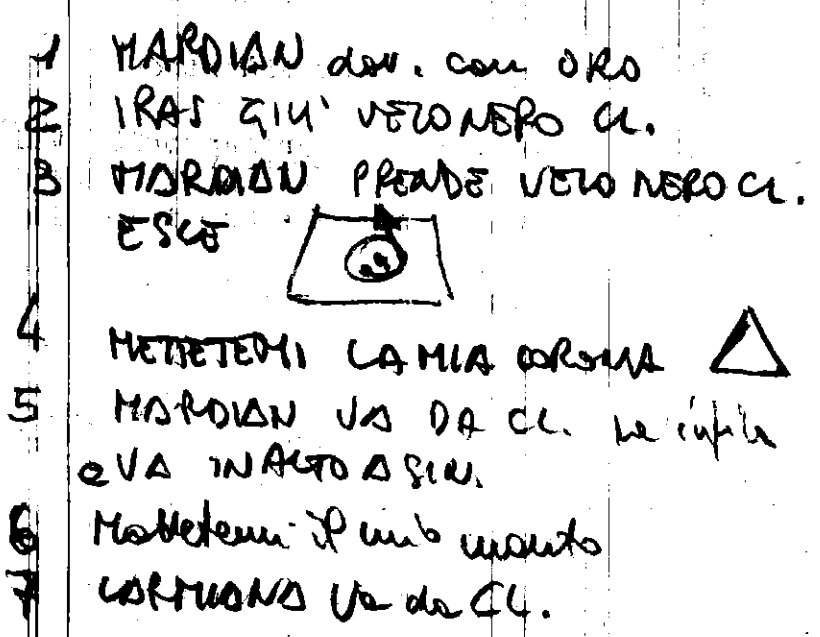 1 MARDIAN dav. con ORO
2 IRAS GIU' VELO NERO CL.
3 MARDIAN PRENDE VELO NERO CL.
ESCE
4 METTETEMI LA MIA CORONA
5 MARDIAN VA DA CL. la infila
e VA IN ALTO A SIN.
6 Mettetemi il mio manto
7 CARMIANA Va da CL.